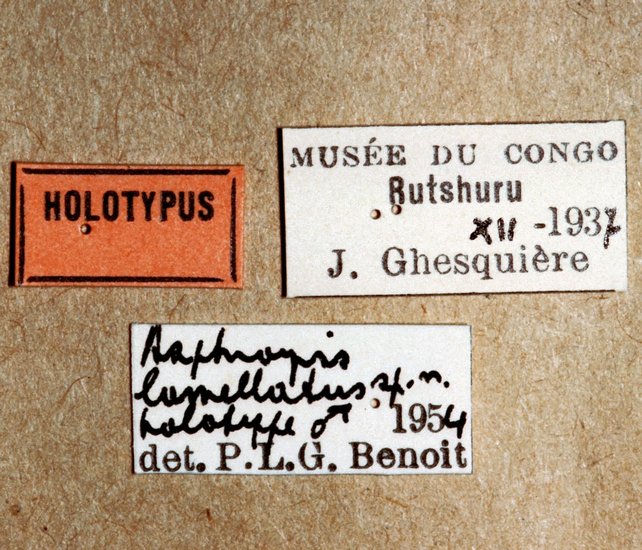 HOLOTYPUS
MUSÉE DU CONGO
Rutshuru
XII -1937
J. Ghesquière
lamellatus sp. n.
holotype ♂ 1954
det. P.L.G. Benoit